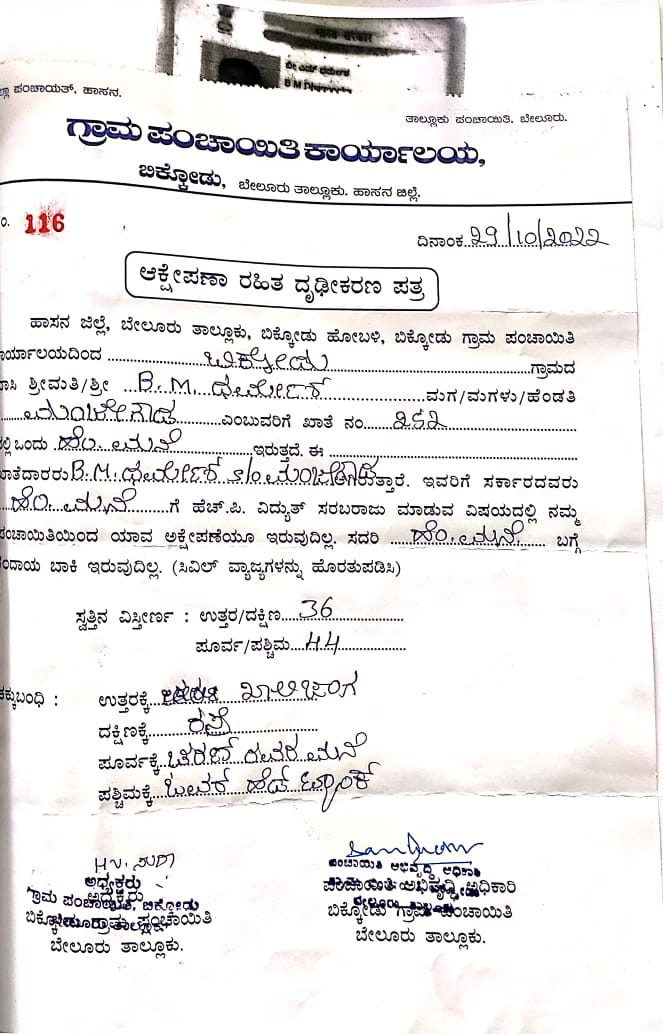 B M
ಲ್ಲಾ ಪಂಚಾಯತ್, ಹಾಸನ.
ತಾಲ್ಲೂಕು ಪಂಚಾಯಿತಿ, ಬೇಲೂರು.
ಗ್ರಾಮ ಪಂಚಾಯಿತಿ ಕಾರ್ಯಾಲಯ,
ಬಿಕ್ಕೋಡು, ಬೇಲೂರು ತಾಲ್ಲೂಕು. ಹಾಸನ ಜಿಲ್ಲೆ.
ಂ. 116
ದಿನಾಂಕ 29/10/2022
ಆಕ್ಷೇಪಣಾ ರಹಿತ ದೃಢೀಕರಣ ಪತ್ರ
ಹಾಸನ ಜಿಲ್ಲೆ, ಬೇಲೂರು ತಾಲ್ಲೂಕು, ಬಿಕ್ಕೋಡು ಹೋಬಳಿ, ಬಿಕ್ಕೋಡು ಗ್ರಾಮ ಪಂಚಾಯಿತಿ
ಾರ್ಯಾಲಯದಿಂದ ಬಿಕ್ಕೋಡು ಗ್ರಾಮದ
ಾಸಿ ಶ್ರೀಮತಿ/ಶ್ರೀ B.M. ಧರ್ಮೇಶ್ ಮಗ/ಮಗಳು/ಹೆಂಡತಿ
ಮಂಜೇಗೌಡ ಎಂಬುವರಿಗೆ ಖಾತೆ ನಂ. 252
ಲ್ಲಿ ಒಂದು ಹೊ. ಮನೆ ಇರುತ್ತದೆ. ಈ
ಾತೆದಾರರು B.M. ಧರ್ಮೇಶ್ s/o ಮಂಜೇಗೌಡ ುತ್ತಾರೆ. ಇವರಿಗೆ ಸರ್ಕಾರದವರು
ಹೊ. ಮನೆ ಗೆ ಹೆಚ್.ಪಿ. ವಿದ್ಯುತ್ ಸರಬರಾಜು ಮಾಡುವ ವಿಷಯದಲ್ಲಿ ನಮ್ಮ
ಪಂಚಾಯಿತಿಯಿಂದ ಯಾವ ಅಕ್ಷೇಪಣೆಯೂ ಇರುವುದಿಲ್ಲ. ಸದರಿ ಹೊ. ಮನೆ ಬಗ್ಗೆ
ಕಂದಾಯ ಬಾಕಿ ಇರುವುದಿಲ್ಲ. (ಸಿವಿಲ್ ವ್ಯಾಜ್ಯಗಳನ್ನು ಹೊರತುಪಡಿಸಿ)
ಸ್ವತ್ತಿನ ವಿಸ್ತೀರ್ಣ : ಉತ್ತರ/ದಕ್ಷಿಣ 36
ಪೂರ್ವ/ಪಶ್ಚಿಮ 44
ಕ್ಕುಬಂಧಿ : ಉತ್ತರಕ್ಕೆ ಖಾಲಿ ಜಾಗ
ದಕ್ಷಿಣಕ್ಕೆ ರಸ್ತೆ
ಪೂರ್ವಕ್ಕೆ ಈವರ ಮನೆ
ಪಶ್ಚಿಮಕ್ಕೆ ಓವರ್ ಹೆಡ್ ಟ್ಯಾಂಕ್
ಅಧ್ಯಕ್ಷರು
ಗ್ರಾಮ ಪಂಚಾಯಿತಿ, ಬಿಕ್ಕೋಡು
ಬಿಕ್ಕೋಡು ಗ್ರಾಮ ಪಂಚಾಯಿತಿ
ಬೇಲೂರು ತಾಲ್ಲೂಕು.
ಪಂಚಾಯಿತಿ ಅಭಿವೃದ್ಧಿ ಅಧಿಕಾರಿ
ಪಂಚಾಯಿತಿ ಅಭಿವೃದ್ಧಿ ಅಧಿಕಾರಿ
ಬಿಕ್ಕೋಡು ಗ್ರಾಮ ಪಂಚಾಯಿತಿ
ಬೇಲೂರು ತಾಲ್ಲೂಕು.